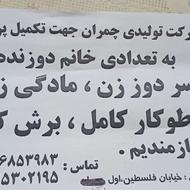 شرکت تولیدی چمران جهت تکمیل
به تعدادی خانم دوزنده
سر دوز زن ، مادگی ز
طوکار کامل ، برش ک
ازمندیم .
تماس : ۶۸۵۳۹۸۳
۵۳۰۲۱۹۵
: خیابان فلسطین.اول